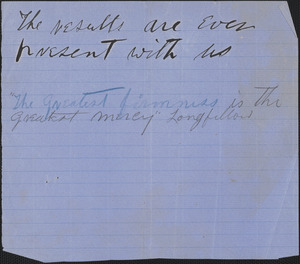 The results are ever
present with us
"The greatest firmness is the
greatest mercy" Longfellow